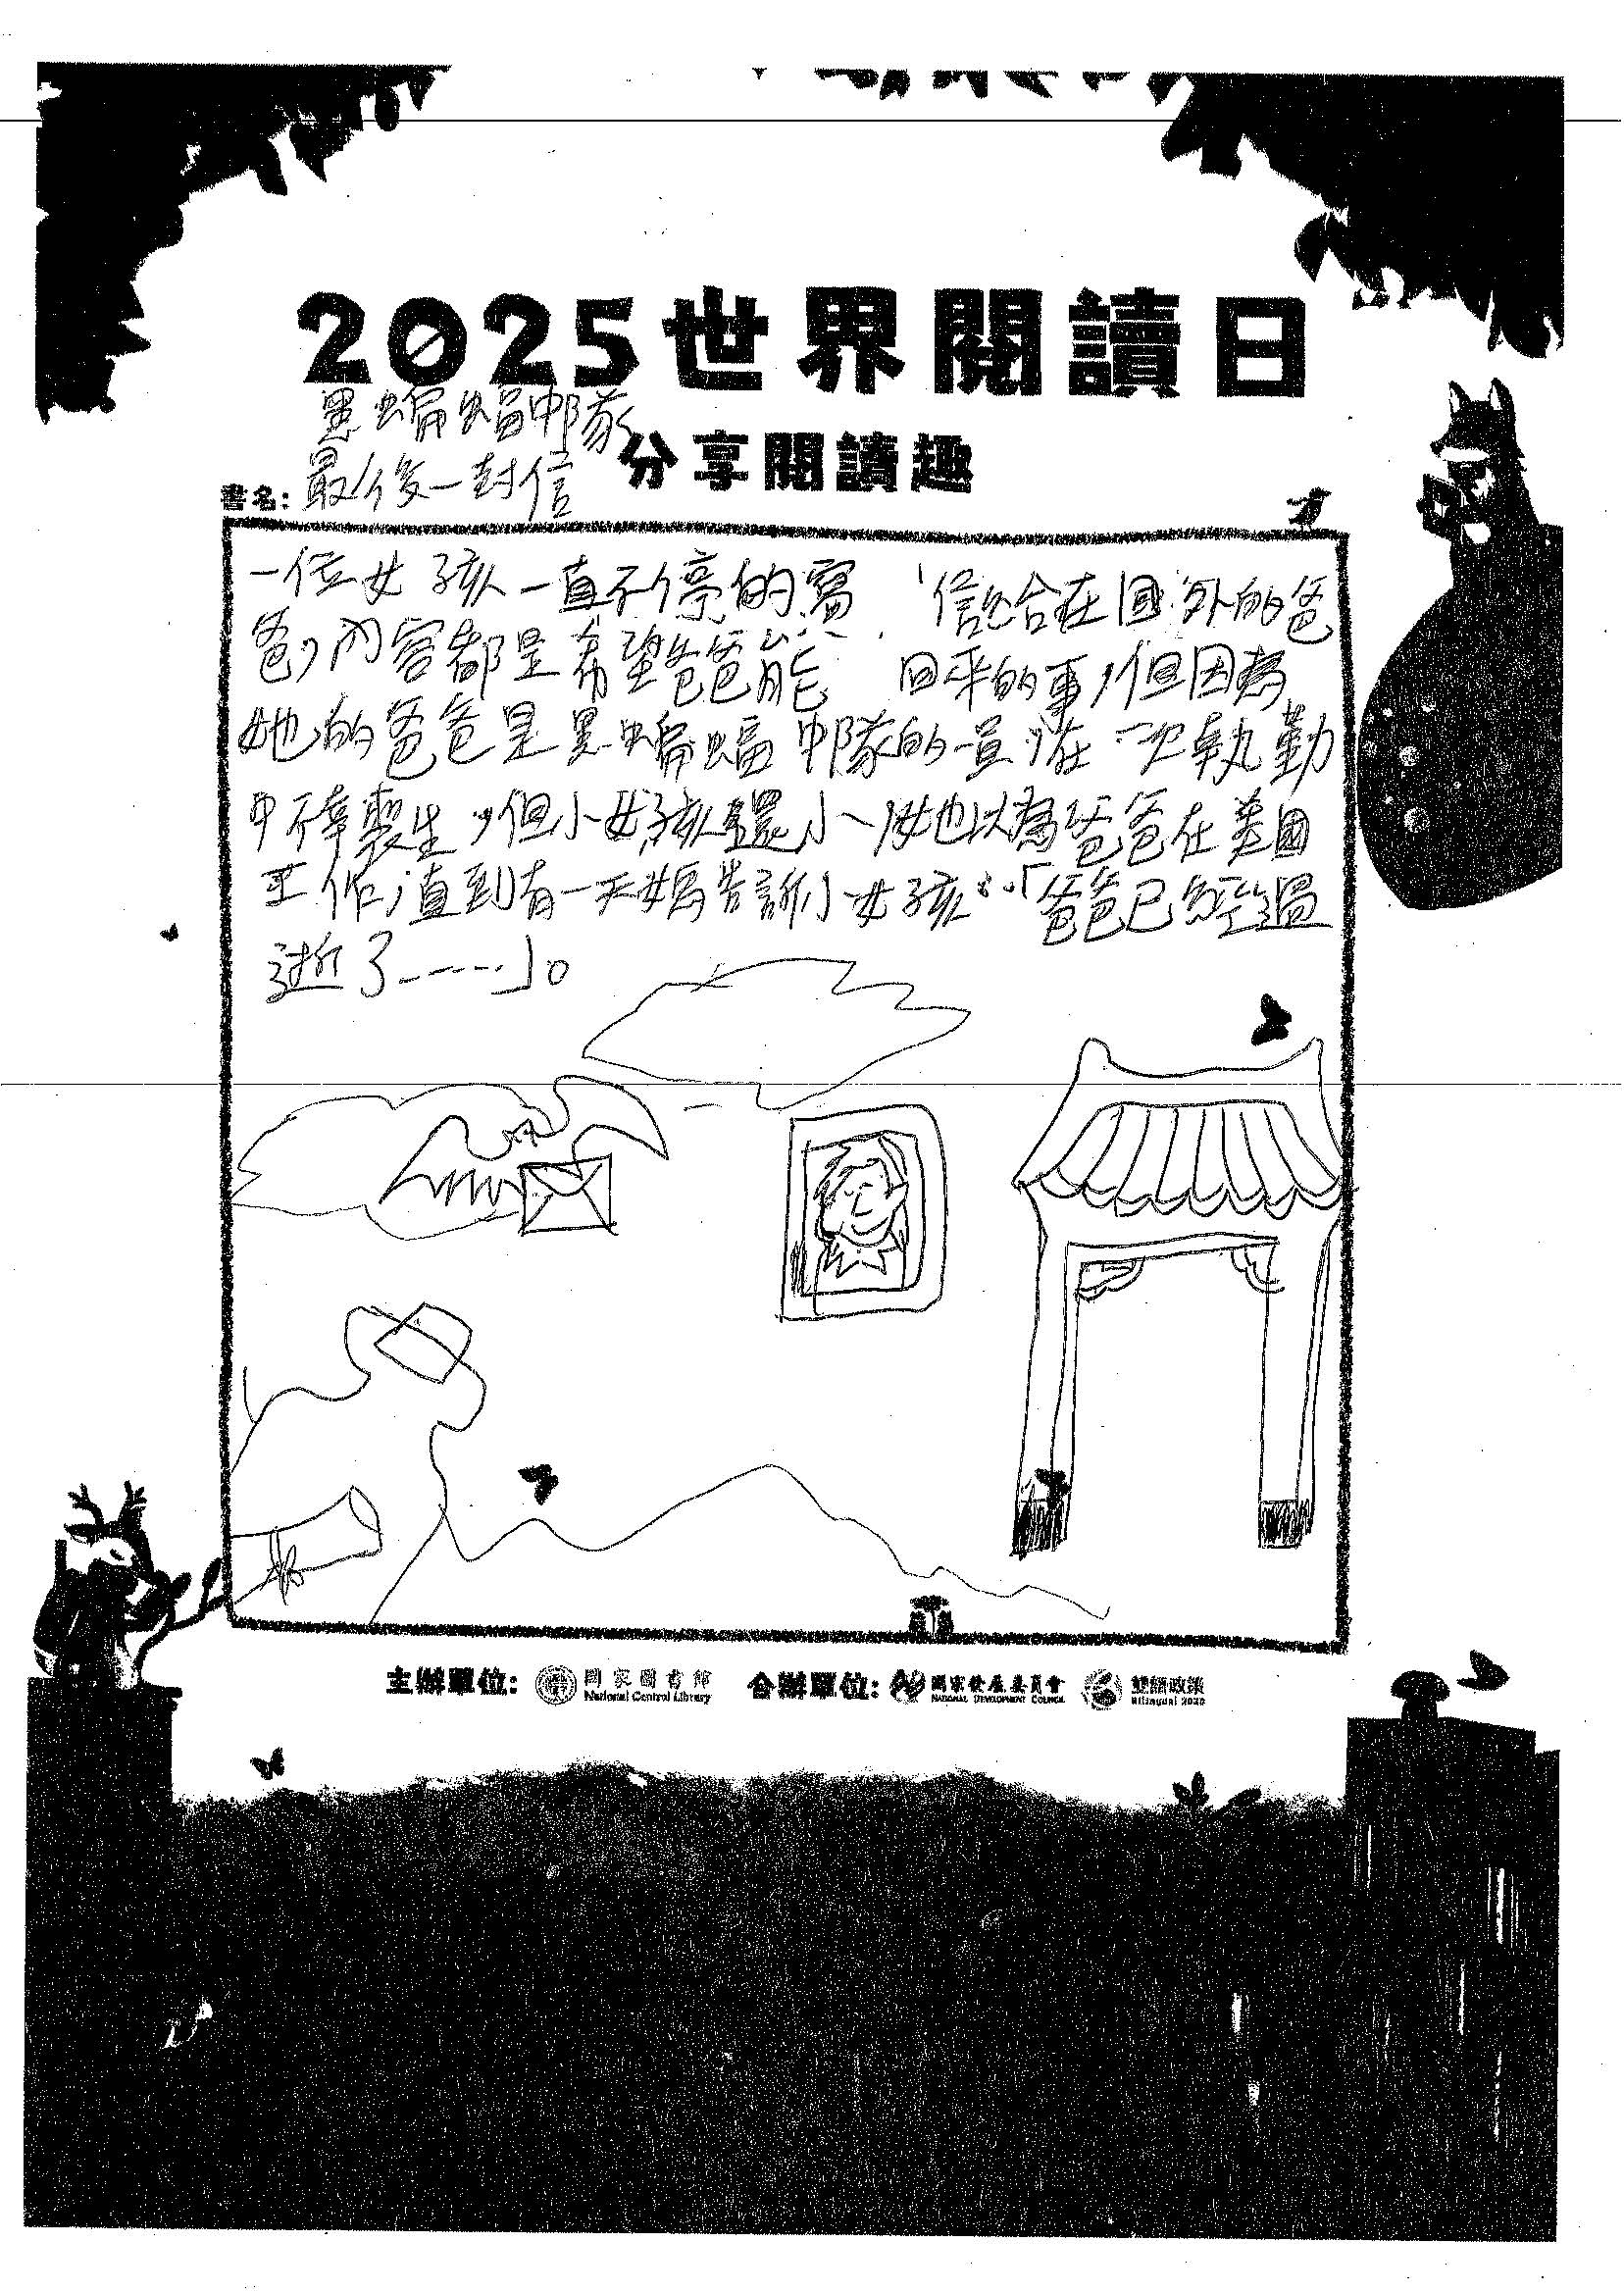 2025世界閱讀日
黑蝙蝠中隊
分享閱讀趣
書名:最後一封信
一位女孩一直不停的寫信給在國外的爸
爸,內容都是希望爸爸能回來的事,但因為
她的爸爸是黑蝙蝠中隊的一員,在一次執勤
中不幸喪生,但小女孩還小,她以為爸爸在美國
工作,直到有一天媽告訴小女孩:「爸爸已經過
逝了……」。
主辦單位: 國家圖書館 National Central Library 合辦單位: 國家發展委員會 NATIONAL DEVELOPMENT COUNCIL 雙語政策 Bilingual 2030